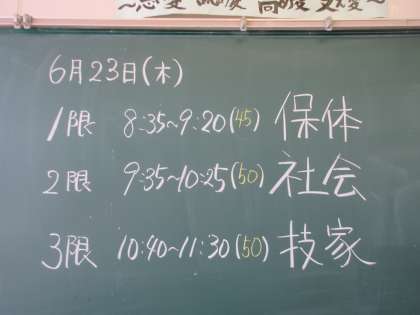 6月23日(木)
1限 8:35~9:20(45) 保体
2限 9:35~10:25(50) 社会
3限 10:40~11:30(50) 技家